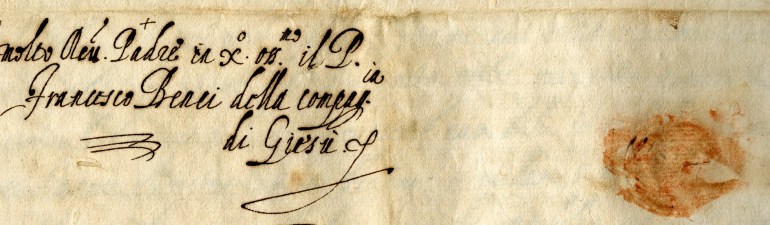 molto Reu. Padre in X.o oss.mo il P.
Francesco Benci della compag.ia
di Giesù.